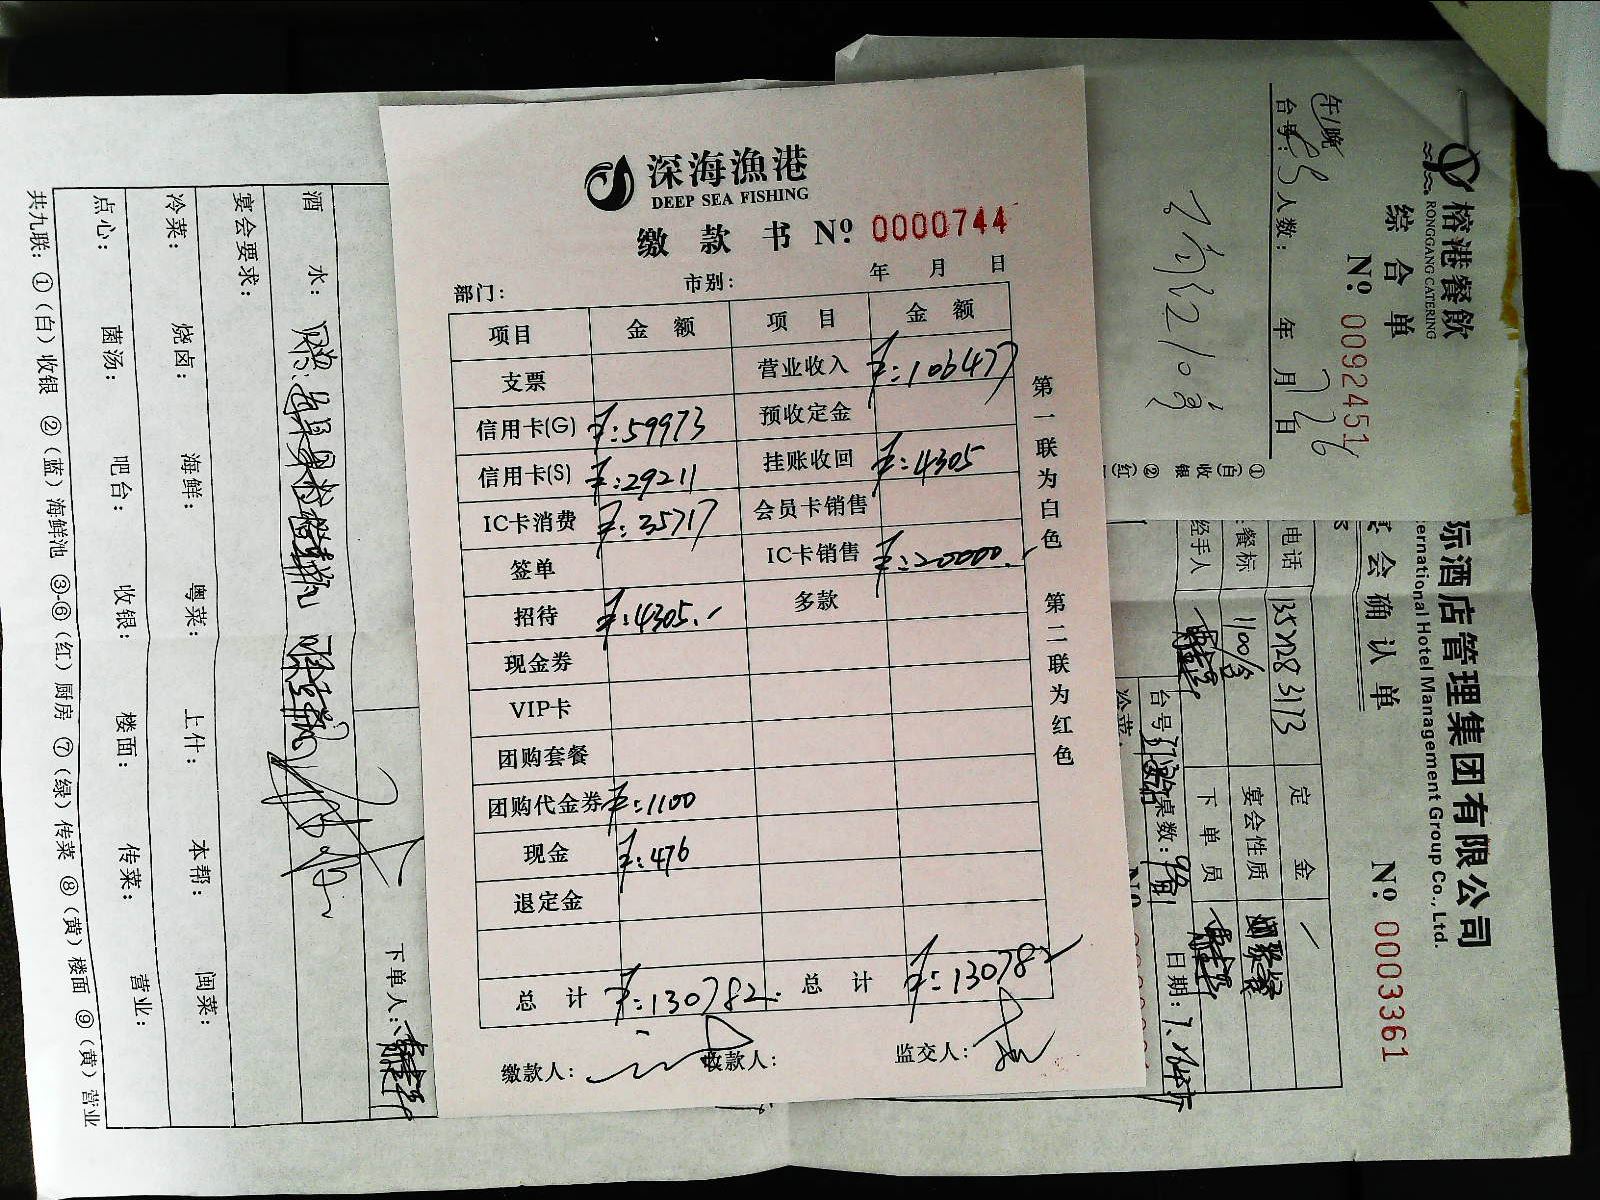 深海漁港
DEEP SEA FISHING
缴款书 № 0000744
部门： 市别： 年 月 日
项目 金额 项目 金额
支票 营业收入 ¥:106477
信用卡(G) ¥:59973 预收定金
信用卡(S) ¥:29211 挂账收回 ¥:4305
IC卡消费 ¥:35717 会员卡销售
签单 IC卡销售 ¥:20000.
招待 ¥:4305. 多款
现金券
VIP卡
团购套餐
团购代金券 ¥:1100
现金 ¥:476
退定金
总计 ¥:130782. 总计 ¥:130782
缴款人： 收款人： 监交人：
第一联为白色 第二联为红色
榕港餐飲
RONGGANG CATERING
综合单
№: 0092451
午/晚
台号: 人数: 年 月 日
7 26
①(白)收银 ②(
际酒店管理集团有限公司
ernational Hotel Management Group Co., Ltd.
会确认单
№: 0003361
电话 定金
餐标 1100/ 宴会性质
经手人 下单员
台号 桌数: 日期:
冷菜:
下单人:
酒水:
宴会要求:
冷菜: 烧卤: 海鲜: 粤菜: 上什: 本帮: 闽菜:
点心: 菌汤: 吧台: 收银: 楼面: 传菜: 营业:
共九联: ①(白)收银 ②(蓝)海鲜池 ③-⑥(红)厨房 ⑦(绿)传菜 ⑧(黄)楼面 ⑨(黄)营业